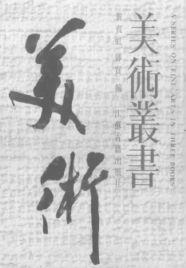 美術叢書
A SERIES ON FINE ARTS IN THREE BOOKS
黃賓虹 鄧實 編
江蘇古籍出版社
美術